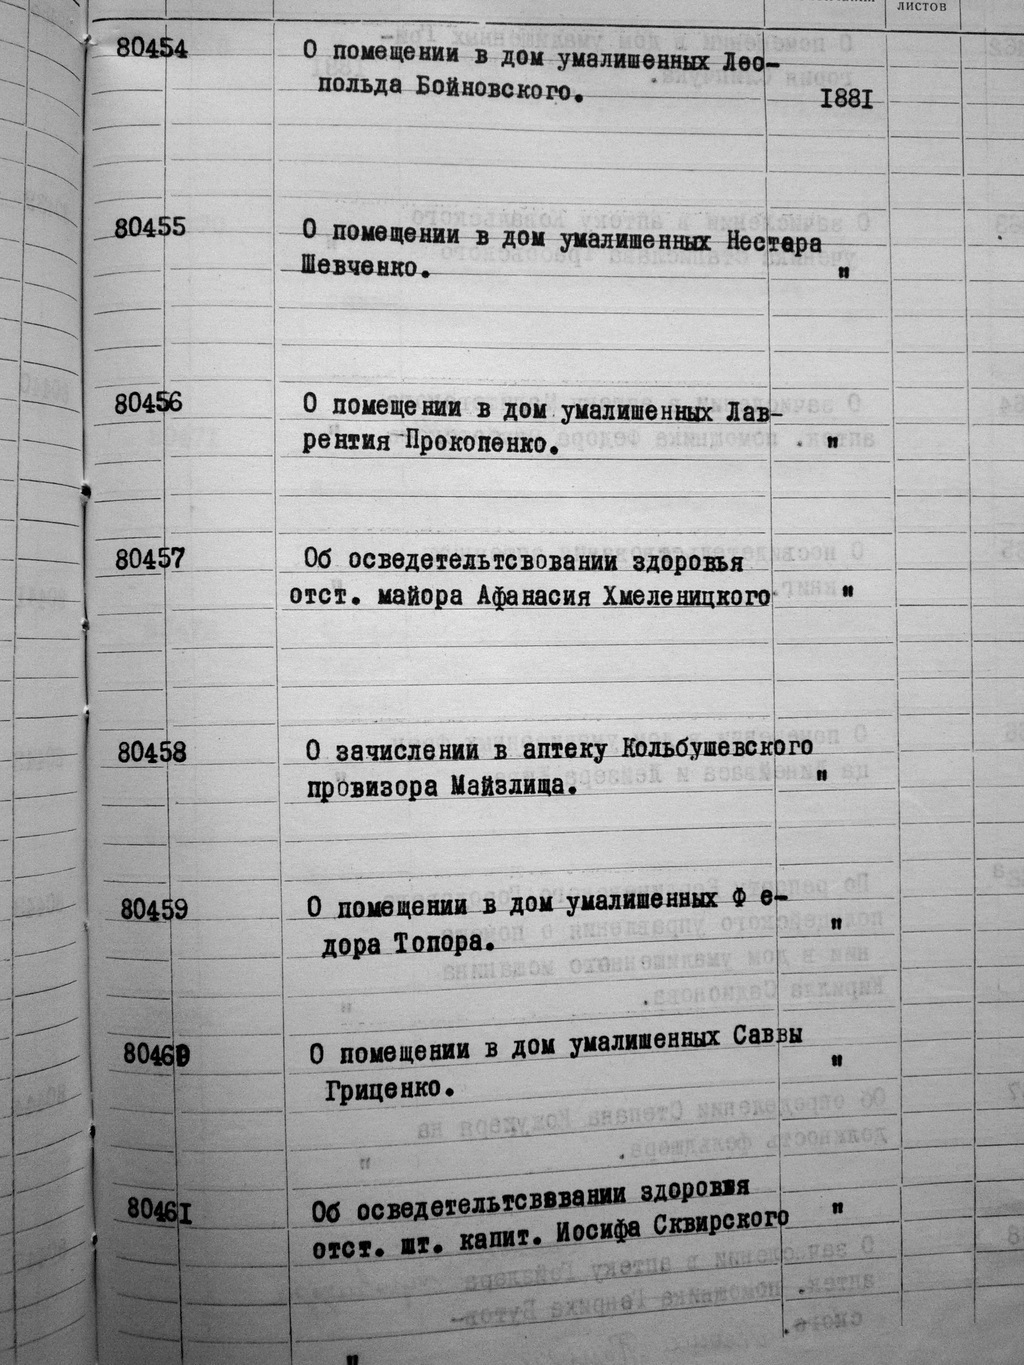 листов
80454 О помещении в дом умалишенных Лео-
польда Бойновского. I88I
80455 О помещении в дом умалишенных Нестера
Шевченко. "
80456 О помещении в дом умалишенных Лав-
рентия Прокопенко. "
80457 Об осведетельтсвовании здоровья
отст. майора Афанасия Хмеленицкого "
80458 О зачислении в аптеку Кольбушевского
провизора Майзлища. "
80459 О помещении в дом умалишенных Ф е-
дора Топора. "
80460 О помещении в дом умалишенных Саввы
Гриценко. "
8046I Об осведетельтсввании здоровия
отст. шт. капит. Иосифа Сквирского "
"